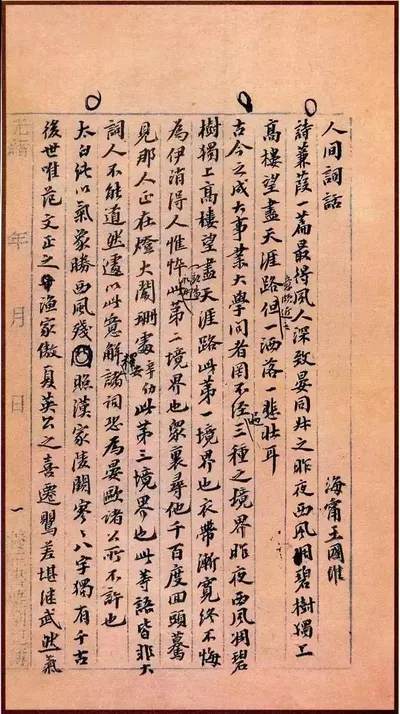 人间詞話
海甯王國維
詩蒹葭一篇最得風人深致晏同叔之昨夜西風凋碧樹獨上
高樓望盡天涯路意頗近之但一洒落一悲壯耳
古今之成大事業大學問者罔不經過三種之境界昨夜西風凋碧
樹獨上高樓望盡天涯路此第一境界也衣帶漸寬終不悔
為伊消得人憔悴此第二境界也眾裏尋他千百度回頭驀
見那人正在燈火闌珊處辛幼安此第三境界也此等語皆非大
詞人不能道然遽以此意解諸詞恐為晏歐諸公所不許也
太白純以氣象勝西風殘照漢家陵闕寥〻八字獨有千古
後世唯范文正之漁家傲夏英公之喜遷鶯差堪繼武然氣
光緒 年 月 日 一